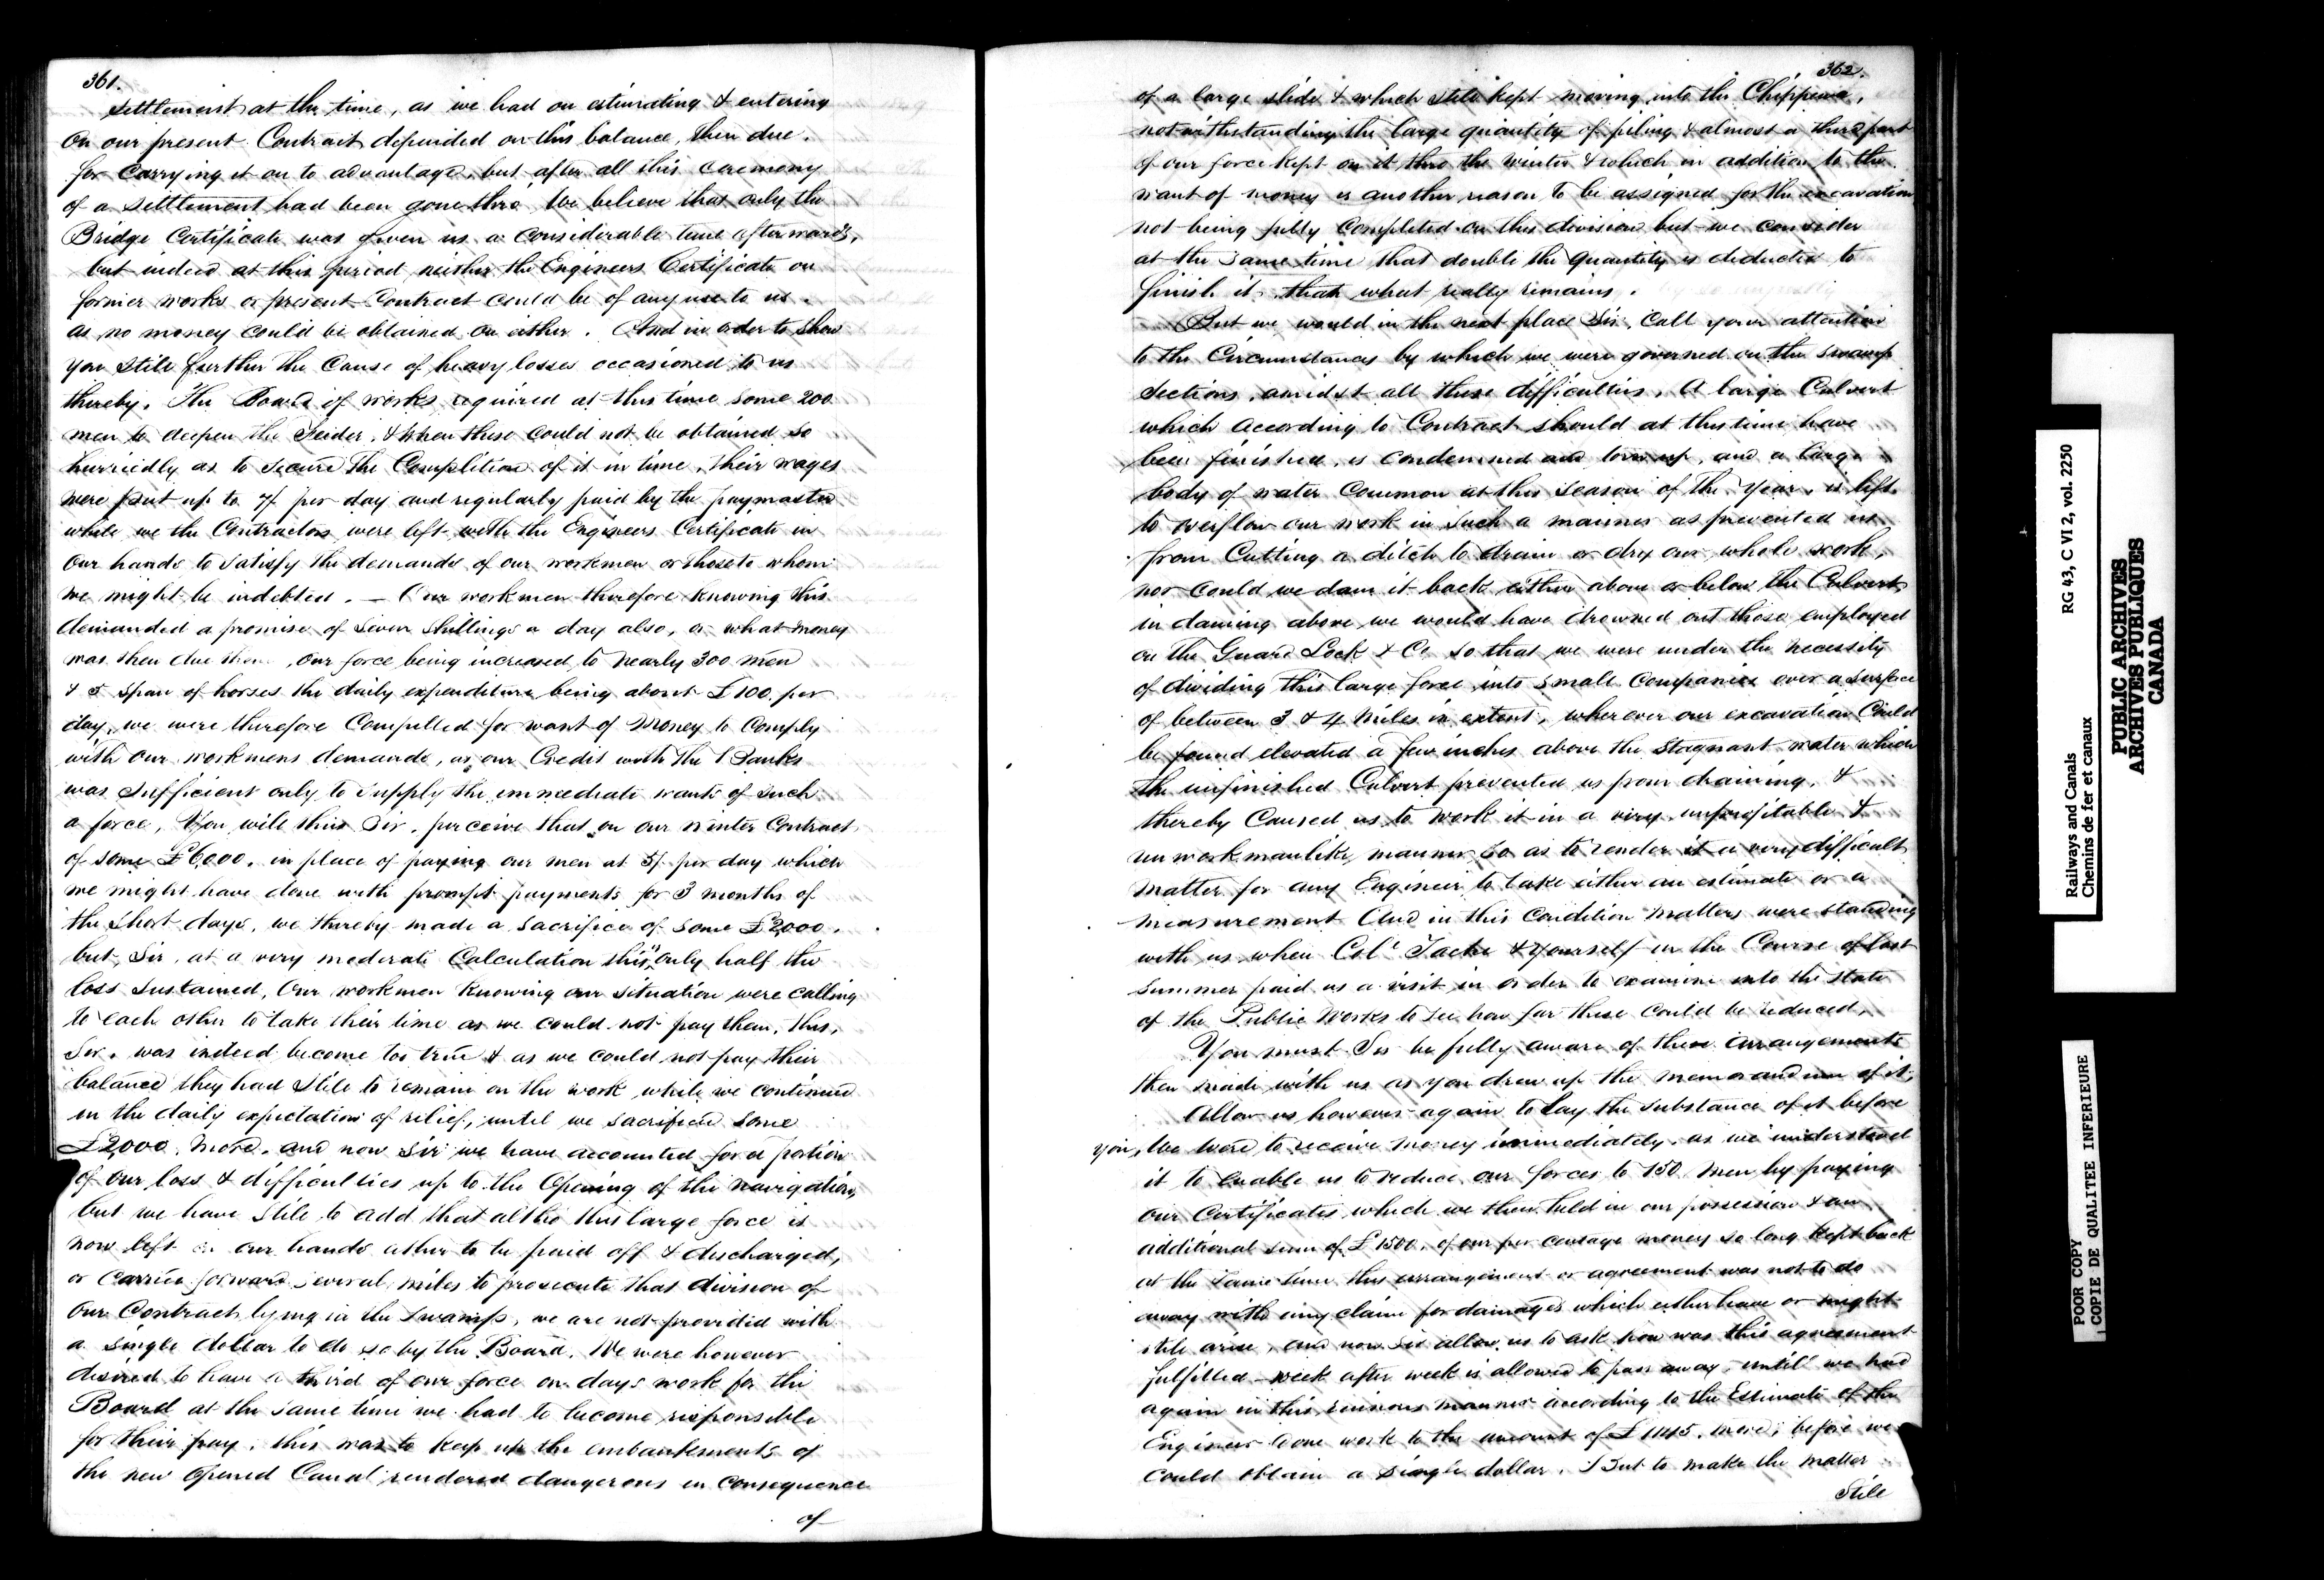 361.
Settlement at the time, as we had on estimating & entering
on our present Contract depended on this balance, then due.
for Carrying it on to advantage, but after all this ceremony
of a settlement had been gone thro' We believe that only the
Bridge Certificate was given us a Considerable time afterwards,
but indeed at this period neither the Engineers Certificate on
former works or present Contract could be of any use to us.
as no money could be obtained on either. And in order to shew
you stile further the Cause of heavy losses occasioned to us
thereby. The Board of works required at this time some 200
men to deepen the Feider, & when these could not be obtained so
hurriedly as to secure the Completion of it in time, their wages
were put up to 7/ per day and regularly paid by the paymaster
while we the Contractors were left with the Engineers Certificate in
our hands to satisfy the demands of our workmen or those to whom
we might be indebted. — Our workmen therefore knowing this
demanded a promise of Seven shillings a day also, or what money
was then due them, our force being increased to nearly 300 men
& 5 span of horses the daily expenditure being about £100 per
day, we were therefore Compelled for want of Money to Comply
with our workmens demands, as our Credit with the Banks
was sufficient only to supply the immediate wants of such
a force, You will thus Sir, perceive that on our winter Contract
of some £6,000, in place of paying our men at 5/ per day which
we might have done with prompt payments for 3 months of
the short days, we thereby made a sacrifice of some £2000.
but, Sir, at a very moderate Calculation this only half the
loss sustained, Our workmen Knowing our situation were calling
to each other to take their time as we could not pay them, this,
Sir, was indeed become too true & as we could not pay their
balance they had stile to remain on the work while we continued
in the daily expectation of relief, until we sacrificed some
£2000. more, and now Sir we have accounted for a portion
of our loss & difficulties up to the Opening of the navigation,
but we have stile to add that altho this large force is
now left on our hands either to be paid off & discharged,
or Carried forward several miles to prosecute that division of
our Contract lying in the Swamp, we are not provided with
a single dollar to do so by the Board. We were however
desired to have a third of our force on days work for the
Board at the same time we had to become responsible
for their pay, this was to keep up the embankments of
the new Opened Canal rendered dangerous in Consequence
of
362.
of a large slide & which stile kept moving into the Chippewa,
notwithstanding the large quantity of piling & almost a third part
of our force kept on it thro the winter & which in addition to the
want of money is another reason to be assigned for the excavation
not being fully Completed on this division but we consider
at the same time that double the quantity is deducted to
finish it, than what really remains.
But we would in the next place Sir, Call your attention
to the Circumstances by which we were governed on the swamp
Sections, amidst all these difficulties. A large Culvert
which according to Contract should at this time have
been finished, is condemned and torn up, and a large
body of water Common at this Season of the Year, is left
to overflow our work in such a manner as prevented us
from Cutting a ditch to drain or dry our whole work,
nor could we dam it back either above or below the Culvert
in daming above we would have drowned out those employed
on the Guard Lock & Co so that we were under the necessity
of dividing this large force into small Companies over a surface
of between 3 & 4 Miles in extent, wherever our excavation Could
be found elevated a few inches above the stagnant water which
the unfinished Culvert prevented us from draining, &
thereby Caused us to work it in a very unprofitable &
unworkmanlike manner so as to render it a very difficult
matter for any Engineer to take either an estimate or a
measurement And in this Condition matters were standing
with us when Col. Tache & yourself in the Course of last
Summer paid us a visit in order to examine into the state
of the Public Works to see how far these could be reduced,
You must Sir be fully aware of these arrangements
then made with us as you drew up the memorandum of it,
Allow us however again to lay the substance of it before
you, We were to receive money immediately, as we understood
it to enable us to reduce our forces to 150 men by paying
our Certificates which we then held in our possession & an
additional sum of £1500. of our per centage money so long kept back
at the same time this arrangement or agreement was not to do
away with any claim for damages which either have or might
stile arise, and now Sir allow us to ask how was this agreement
fulfilled - week after week is allowed to pass away, until we had
again in this ruinous manner according to the Estimate of the
Engineer done work to the amount of £1145. more, before we
could obtain a single dollar. But to make the matter
Stile
RG 43, C VI 2, vol. 2250
Railways and Canals
Chemins de fer et canaux
PUBLIC ARCHIVES
ARCHIVES PUBLIQUES
CANADA
POOR COPY
COPIE DE QUALITEE INFERIEURE